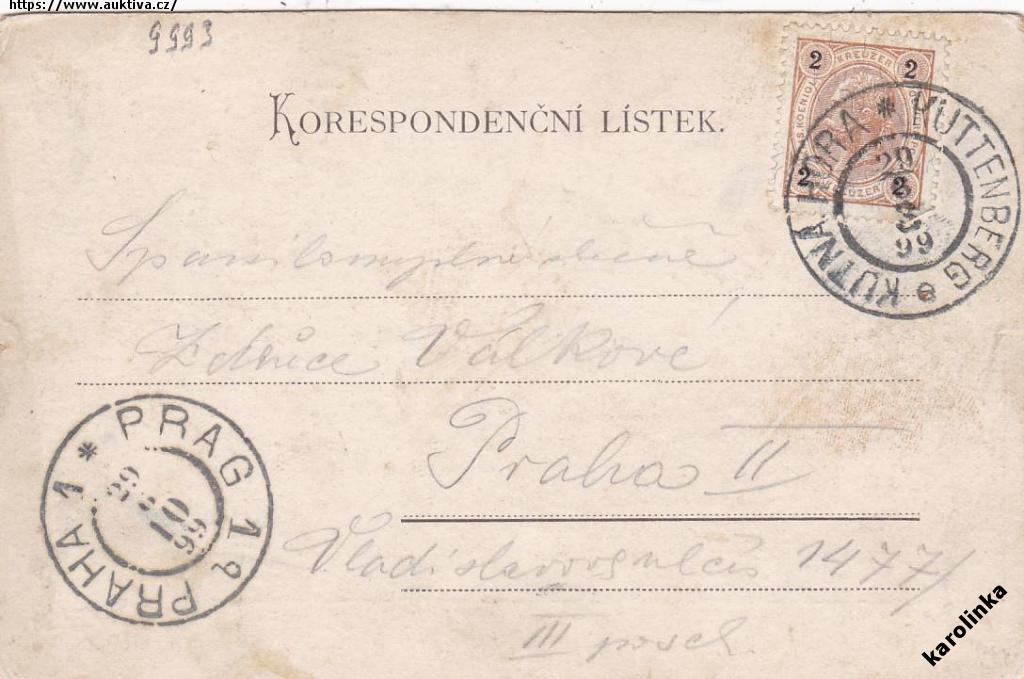 https://www.auktiva.cz/
9993
KORESPONDENČNÍ LÍSTEK.
2 KREUZER 2
2 KREUZER 2
KUTNÁ HORA * KUTTENBERG
29
99
slečně
Zdeňce Válkové
Praha II
PRAG 1 * PRAHA 1
99
Vladislavova ulice 1477/
III posch.
karolinka